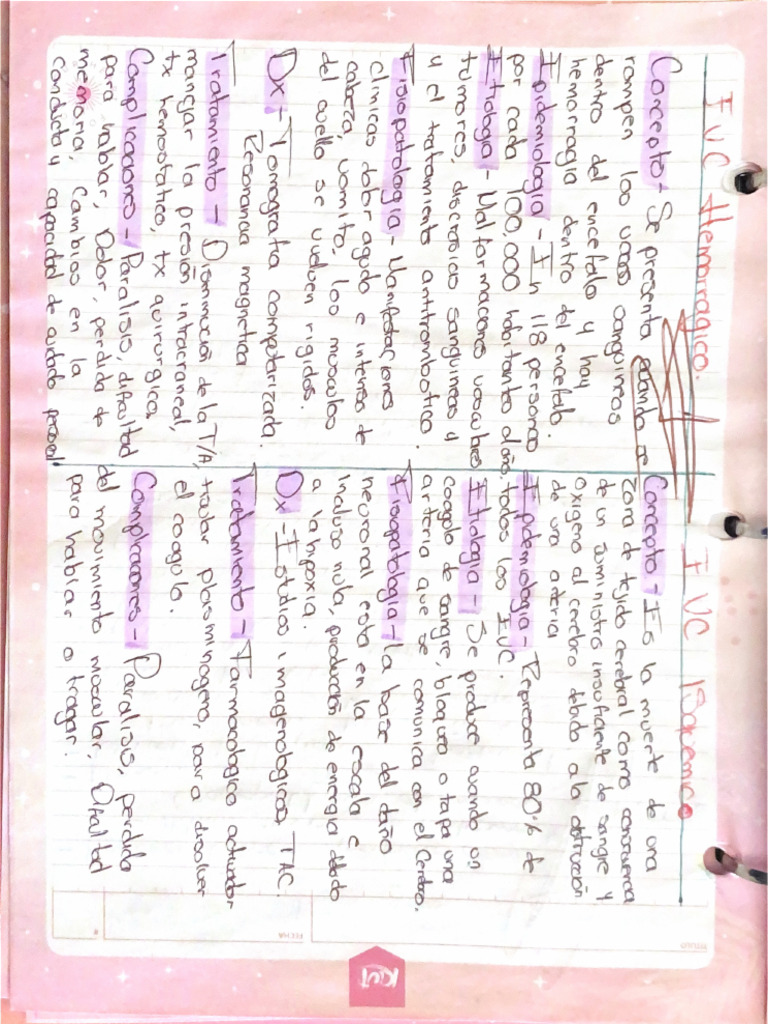 EVC Hemorragico.
Concepto - Se presenta cuando se
rompen los vasos sanguineos
dentro del encefalo y hay
hemorragia dentro del encefalo.
Epidemiologia - En 118 personas
por cada 100,000 habitantes al año.
Etiologia - Malformaciones vasculares
tumores, discrasias sanguineas y
y el tratamiento antitrombotico.
Fisiopatologia - Manifestaciones
clinicas dolor agudo e intenso de
cabeza, vomito, los musculos
del cuello se vuelven rigidos.
Dx - Tomografia computarizada.
Resonancia magnetica
Tratamiento - Disminución de la T/A,
manejar la presión intracraneal,
tx hemostatico, tx quirurgica
Complicaciones - Paralisis, dificultad
para hablar, Dolor, perdida de
memoria, Cambios en la
conducta y capacidad de cuidado personal.
EVC Isquemico
Concepto - Es la muerte de una
zona de tejido cerebral como consecuencia
de un suministro insuficiente de sangre y
oxigeno al cerebro debido a la obstrucción
de una arteria
Epidemiologia - Representa 80% de
todos los EVC.
Etiologia - Se produce cuando un
coagulo de sangre, bloquea o tapa una
arteria que se comunica con el Cerebro.
Fisiopatologia - La base del daño
neuronal esta en la escala e
incluso nula, producción de energia debido
a la hipoxia.
Dx - Estudios imagenologicos, TAC.
Tratamiento - Farmacologico activador
tisular plasminogeno, para disolver
el coagulo.
Complicaciones - Paralisis, perdida
del movimiento muscular, Dificultad
para hablar o tragar.
TITULO
FECHA
KIUT